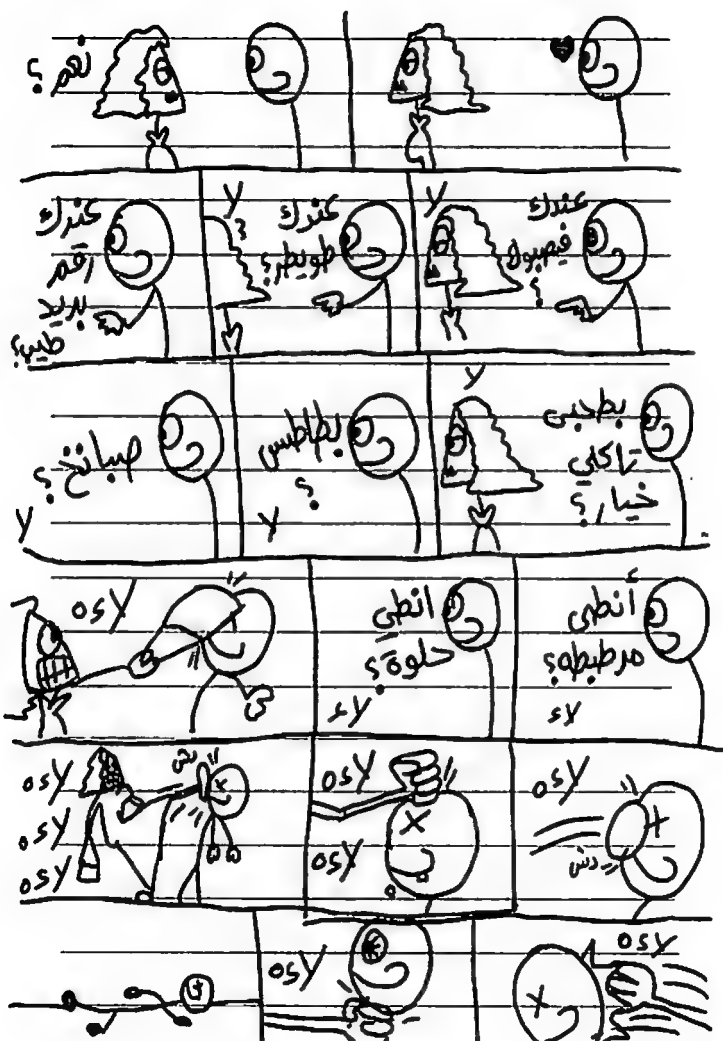 نعم؟
عندك
فيصبوك
؟
لا
عندك
طويطر؟
لا
عندك
رقم
بريد
طيب؟
بطحبي
تاكلي
خيار؟
لا
بطاطس
؟
لا
صبانخ؟
لا
أنطي
مرطبطه؟
لاء
انطي
حلوة؟
لاء
لاءه
لاءه
دش
لاءه
لاءه
دش
لاءه
لاءه
لاءه
لاءه
لاءه